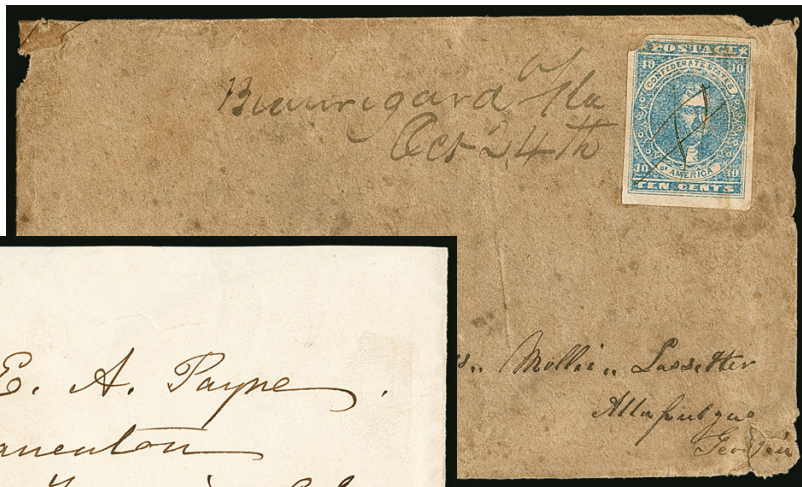 Beauregard Ala
Oct 24th
POSTAGE
10 10
CONFEDERATE STATES
OF AMERICA
10 10
TEN CENTS
Mollie Lassetter
Attapulgus
Georgia
E. A. Payne.